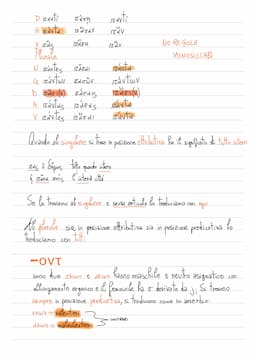 D παντί πάσῃ παντί
A πάντα πᾶσαν πᾶν
V πᾶς πᾶσα πᾶν
NO REGOLA
MONOSILLABI
Plurale
N πάντες πᾶσαι πάντα
G πάντων πασῶν πάντων
D πᾶσι(ν) πάσαις πᾶσι(ν)
A πάντας πάσας πάντα
V πάντες πᾶσαι πάντα
Quando al singolare si trova in posizione attributiva ha il significato di tutto intero
Se lo troviamo al singolare e senza articolo lo traduciamo con ogni
Al plurale sia in posizione attributiva sia in posizione predicativa lo
traduciamo con tutti
-οντ
sono due e hanno maschile e neutro asigmatico con
allungamento organico e il femminile ha σ derivata da j. Si trovano
sempre in posizione predicativa, si traducono come in
volentieri